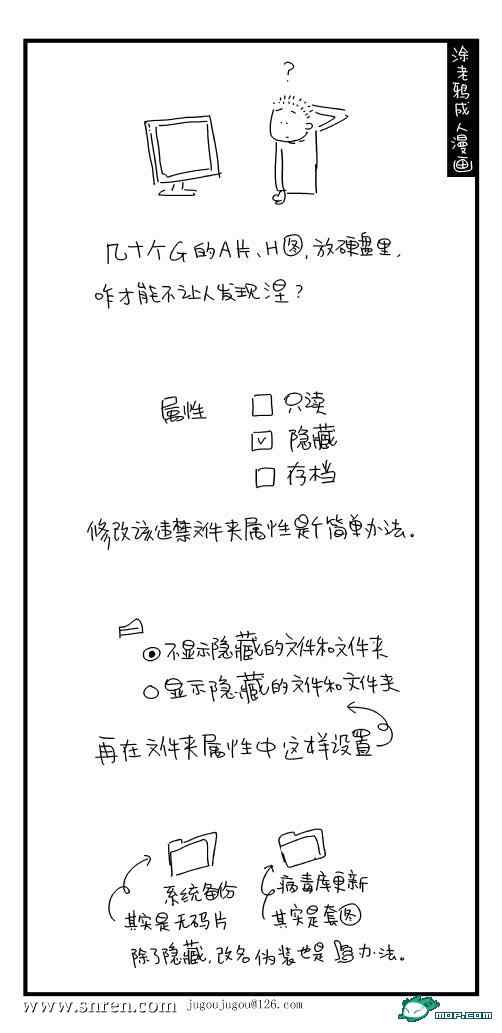 涂老鸦成人漫画
?
几十个G的A片、H图,放硬盘里,
咋才能不让人发现涅?
属性 只读
隐藏
存档
修改该违禁文件夹属性是个简单办法。
不显示隐藏的文件和文件夹
显示隐藏的文件和文件夹
再在文件夹属性中这样设置
系统备份 病毒库更新
其实是无码片 其实是套图
除了隐藏,改名伪装也是办法。
www.snren.com jugoujugou@126.com
mop.com